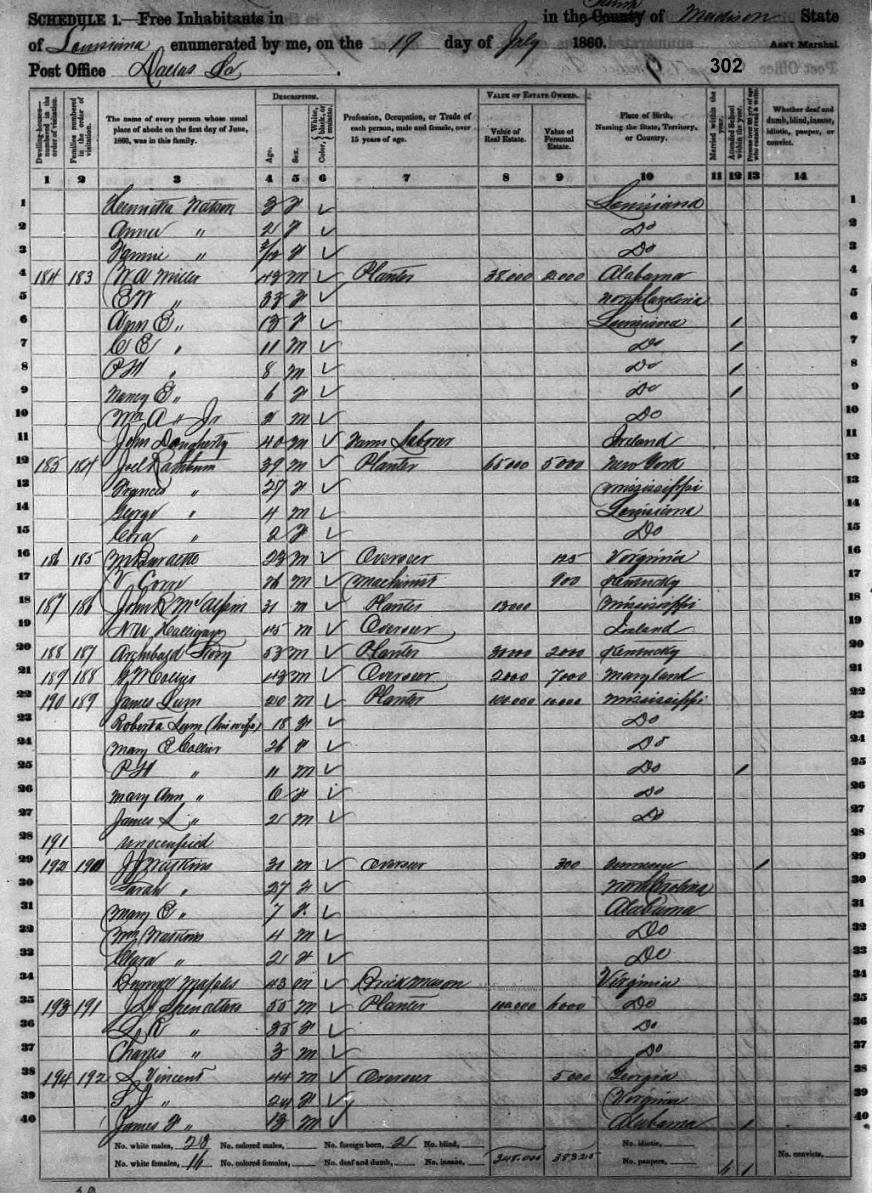 SCHEDULE 1.—Free Inhabitants in in the County of Madison State
of Louisiana enumerated by me, on the 19 day of July 1860. Ass't Marshal
Post Office Dallas La 302
DESCRIPTION. VALUE OF ESTATE OWNED.
Dwelling-houses—numbered in the order of visitation. Families numbered in the order of visitation. The name of every person whose usual place of abode on the first day of June, 1860, was in this family. Age. Sex. Color, White, black, or mulatto. Profession, Occupation, or Trade of each person, male and female, over 15 years of age. Value of Real Estate. Value of Personal Estate. Place of Birth, Naming the State, Territory, or Country. Married within the year. Attended School within the year. Persons over 20 y'rs of age who cannot read & write. Whether deaf and dumb, blind, insane, idiotic, pauper, or convict.
1 2 3 4 5 6 7 8 9 10 11 12 13 14
1 Henrietta 3 F ✓ Louisiana 1
2 Anna " 2 F ✓ Do 2
3 Fannie " /12 F ✓ Do 3
4 184 183 W A Miller 43 M ✓ Planter 38.000 2000 Alabama 4
5 E W " 33 F ✓ North Carolina 5
6 Ann E " 13 F ✓ Louisiana / 6
7 C E " 11 M ✓ Do / 7
8 P H " 8 M ✓ Do / 8
9 Nancy E " 6 F ✓ Do / 9
10 Wm A " Jr M ✓ Do 10
11 John Dougherty 40 M ✓ Farm Laborer Ireland 11
12 185 184 Joel 39 M ✓ Planter 65000 5000 New York 12
13 Frances " 27 F ✓ Mississippi 13
14 George " 4 M ✓ Louisiana 14
15 " 2 F ✓ Do 15
16 186 185 M Burdette 23 M ✓ Overseer 125 Virginia 16
17 26 M ✓ Machinist 900 Kentucky 17
18 187 186 John R McAlpin 31 M ✓ Planter 13000 Mississippi 18
19 45 M ✓ Overseer Ireland 19
20 188 187 Archibald 53 M ✓ Planter 30000 2000 Kentucky 20
21 189 188 Collins 43 M ✓ Overseer 2000 7000 Maryland 21
22 190 189 James Lum 20 M ✓ Planter 100.000 10.000 Mississippi 22
23 Roberta Lum (his wife) 18 F ✓ Do 23
24 Mary C Collier 26 F ✓ Do 24
25 P H " 11 M ✓ Do / 25
26 Mary Ann " 6 F ✓ Do 26
27 James L " 2 M ✓ Do 27
28 191 Unoccupied 28
29 192 190 J J Watkins 31 M ✓ Overseer 300 Tennessee / 29
30 Sarah " 27 F ✓ North Carolina 30
31 Mary E " 7 F ✓ Alabama 31
32 Wm Watkins 4 M ✓ Do 32
33 Clara " 2 F ✓ Do 33
34 43 M ✓ Brick Mason Virginia 34
35 193 191 55 M ✓ Planter 100.000 6000 Do 35
36 " 35 F ✓ Do 36
37 Charles " 3 M ✓ Do 37
38 194 192 L Vincent 44 M ✓ Overseer 5000 Georgia 38
39 " 24 F ✓ Virginia 39
40 James F " 13 M ✓ Alabama / 40
No. white males, No. colored males, No. foreign born, 2 No. blind, No. idiotic, No. convicts,
No. white females, 16 No. colored females, No. deaf and dumb, No. insane, 348.000 No. paupers,